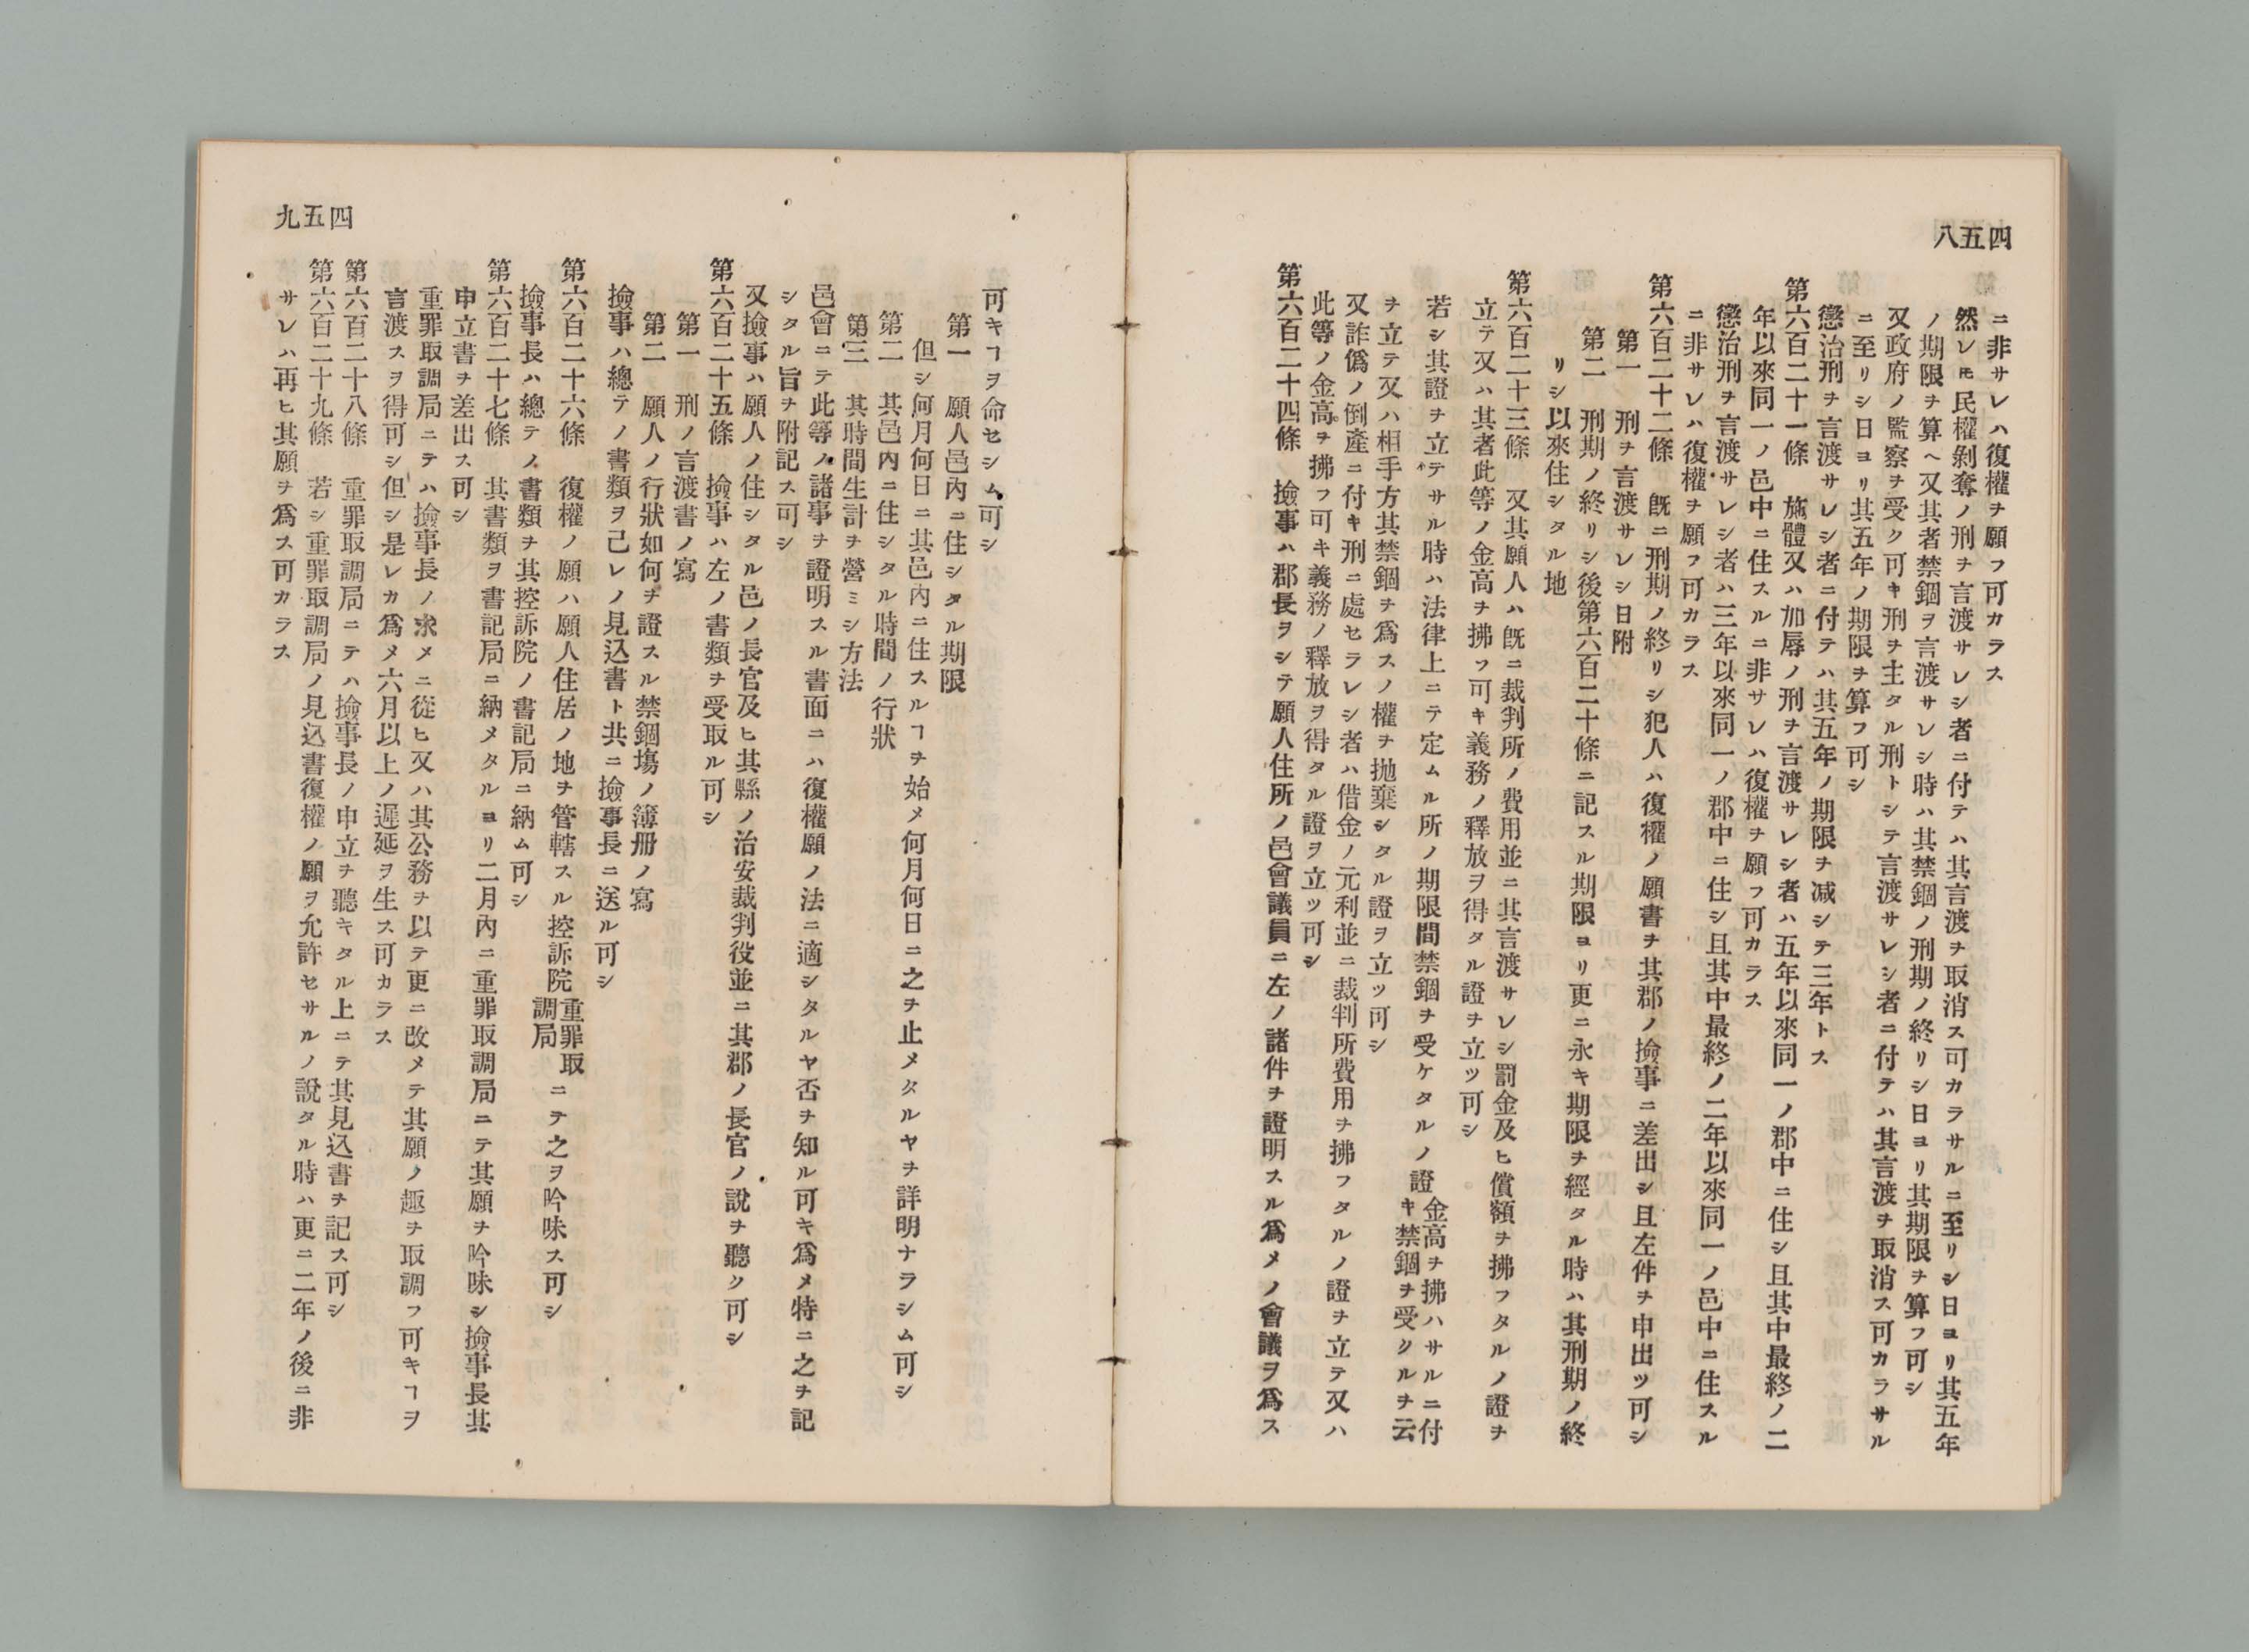 四五八
ニ非サレハ復權ヲ願フ可カラス
然レ𪜈民權剝奪ノ刑ヲ言渡サレシ者ニ付テハ其言渡ヲ取消ス可カラサルニ至リシ日ヨリ其五年
ノ期限ヲ算ヘ又其者禁錮ヲ言渡サレシ時ハ其禁錮ノ刑期ノ終リシ日ヨリ其期限ヲ算フ可シ
又政府ノ監察ヲ受ク可キ刑ヲ主タル刑トシテ言渡サレシ者ニ付テハ其言渡ヲ取消ス可カラサル
ニ至リシ日ヨリ其五年ノ期限ヲ算フ可シ
懲治刑ヲ言渡サレシ者ニ付テハ其五年ノ期限ヲ減シテ三年トス
第六百二十一條 施體又ハ加辱ノ刑ヲ言渡サレシ者ハ五年以來同一ノ郡中ニ住シ且其中最終ノ二
年以來同一ノ邑中ニ住スルニ非サレハ復權ヲ願フ可カラス
懲治刑ヲ言渡サレシ者ハ三年以來同一ノ郡中ニ住シ且其中最終ノ二年以來同一ノ邑中ニ住スル
ニ非サレハ復權ヲ願フ可カラス
第六百二十二條 既ニ刑期ノ終リシ犯人ハ復權ノ願書ヲ其郡ノ撿事ニ差出シ且左件ヲ申出ツ可シ
第一 刑ヲ言渡サレシ日附
第二 刑期ノ終リシ後第六百二十條ニ記スル期限ヨリ更ニ永キ期限ヲ經タル時ハ其刑期ノ終
リシ以來住シタル地
第六百二十三條 又其願人ハ既ニ裁判所ノ費用並ニ其言渡サレシ罰金及ヒ償額ヲ拂フタルノ證ヲ
立テ又ハ其者此等ノ金高ヲ拂フ可キ義務ノ釋放ヲ得タル證ヲ立ツ可シ
若シ其證ヲ立テサル時ハ法律上ニテ定ムル所ノ期限間禁錮ヲ受ケタルノ證金高ヲ拂ハサルニ付キ禁錮ヲ受クルヲ云
ヲ立テ又ハ相手方其禁錮ヲ爲スノ權ヲ抛棄シタル證ヲ立ツ可シ
又詐僞ノ倒產ニ付キ刑ニ處セラレシ者ハ借金ノ元利並ニ裁判所費用ヲ拂フタルノ證ヲ立テ又ハ
此等ノ金高ヲ拂フ可キ義務ノ釋放ヲ得タル證ヲ立ツ可シ
第六百二十四條 撿事ハ郡長ヲシテ願人住所ノ邑會議員ニ左ノ諸件ヲ證明スル爲メノ會議ヲ爲ス
四五九
可キヿヲ命セシム可シ
第一 願人邑內ニ住シタル期限
但シ何月何日ニ其邑內ニ住スルヿヲ始メ何月何日ニ之ヲ止メタルヤヲ詳明ナラシム可シ
第二 其邑內ニ住シタル時間ノ行狀
第三 其時間生計ヲ營ミシ方法
邑會ニテ此等ノ諸事ヲ證明スル書面ニハ復權願ノ法ニ適シタルヤ否ヲ知ル可キ爲メ特ニ之ヲ記
シタル旨ヲ附記ス可シ
又撿事ハ願人ノ住シタル邑ノ長官及ヒ其縣ノ治安裁判役並ニ其郡ノ長官ノ說ヲ聽ク可シ
第六百二十五條 撿事ハ左ノ書類ヲ受取ル可シ
第一 刑ノ言渡書ノ寫
第二 願人ノ行狀如何ヲ證スル禁錮塲ノ簿册ノ寫
撿事ハ總テノ書類ヲ己レノ見込書ト共ニ撿事長ニ送ル可シ
第六百二十六條 復權ノ願ハ願人住居ノ地ヲ管轄スル控訴院重罪取調局ニテ之ヲ吟味ス可シ
撿事長ハ總テノ書類ヲ其控訴院ノ書記局ニ納ム可シ
第六百二十七條 其書類ヲ書記局ニ納メタルヨリ二月內ニ重罪取調局ニテ其願ヲ吟味シ撿事長其
申立書ヲ差出ス可シ
重罪取調局ニテハ撿事長ノ求メニ從ヒ又ハ其公務ヲ以テ更ニ改メテ其願ノ趣ヲ取調フ可キヿヲ
言渡スヲ得可シ但シ是レカ爲メ六月以上ノ遲延ヲ生ス可カラス
第六百二十八條 重罪取調局ニテハ撿事長ノ申立ヲ聽キタル上ニテ其見込書ヲ記ス可シ
第六百二十九條 若シ重罪取調局ノ見込書復權ノ願ヲ允許セサルノ說タル時ハ更ニ二年ノ後ニ非
サレハ再ヒ其願ヲ爲ス可カラス